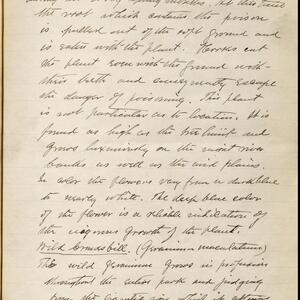 during the early spring months. At this time
the root which contains the poison
is pulled out of the soft ground and
is eaten with the plant. Horses cut
the plant even with the ground with
their teeth and consequently escape
the danger of poisoning. This plant
is not particular as to location. It is
found as high as the tree limit and
grows luxuriantly on the moist river
banks as well as the arid plains.
In color the flowers vary from a dark blue
to nearly white. The deep blue color
of the flower is a reliable indication of
the vigorous growth of the plant.
Wild Cranesbill. (Geranium maculatum)
The wild Geranium grows in profusion
throughout the entire park and judging
from the